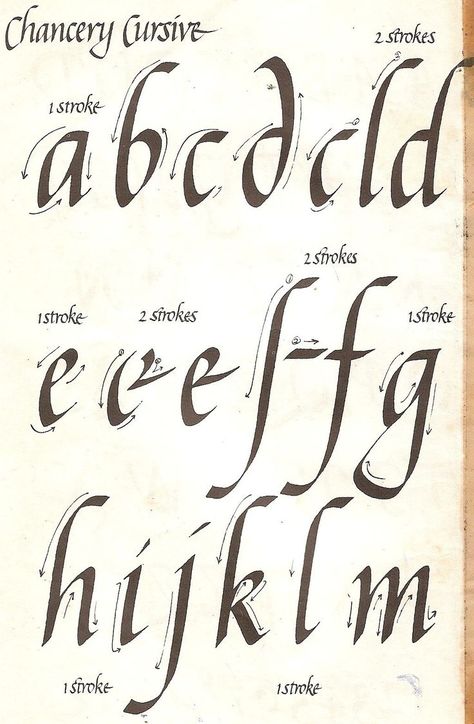 Chancery Cursive
2 strokes
1 stroke
a b c d c l d
2 strokes
1 stroke 2 strokes 1 stroke
e e e ſ - f g
h i j k l m
1 stroke 1 stroke